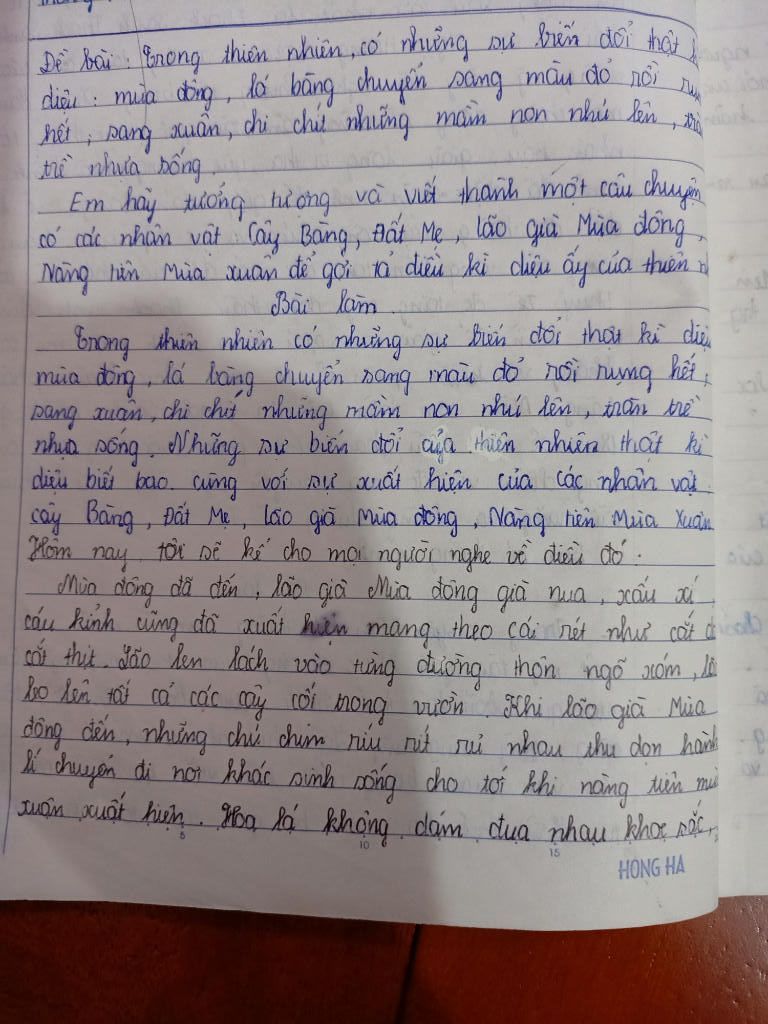 Đề bài: Trong thiên nhiên, có những sự biến đổi thật
diệu: mùa đông, lá bàng chuyển sang màu đỏ rồi
hết, sang xuân, chi chít những mầm non nhú lên,
trề nhựa sống.
Em hãy tưởng tượng và viết thành một câu chuyện
có các nhân vật: Cây Bàng, Đất Mẹ, lão già Mùa đông,
Nàng tiên Mùa xuân để gợi tả điều kì diệu ấy của thiên
Bài làm
Trong thiên nhiên có những sự biến đổi thật kì diệu
mùa đông, lá bàng chuyển sang màu đỏ rồi rụng hết,
sang xuân, chi chít những mầm non nhú lên, tràn trề
nhựa sống. Những sự biến đổi của thiên nhiên thật kì
diệu biết bao. cùng với sự xuất hiện của các nhân vật
cây Bàng, Đất Mẹ, lão già Mùa đông, Nàng tiên Mùa Xuân
Hôm nay tôi sẽ kể cho mọi người nghe về điều đó.
Mùa đông đã đến, lão già Mùa đông già nua, xấu xí
cáu kỉnh cũng đã xuất hiện mang theo cái rét như cắt
cắt thịt. Lão len lách vào từng đường thôn ngõ xóm,
leo lên tất cả các cây cối trong vườn. Khi lão già Mùa
đông đến, những chú chim ríu rít rủi nhau thu dọn hành
lí chuyển đi nơi khác sinh sống cho tới khi nàng tiên
xuân xuất hiện. Hoa lá không dám đua nhau khoe sắc,
5 10 15
HONG HA